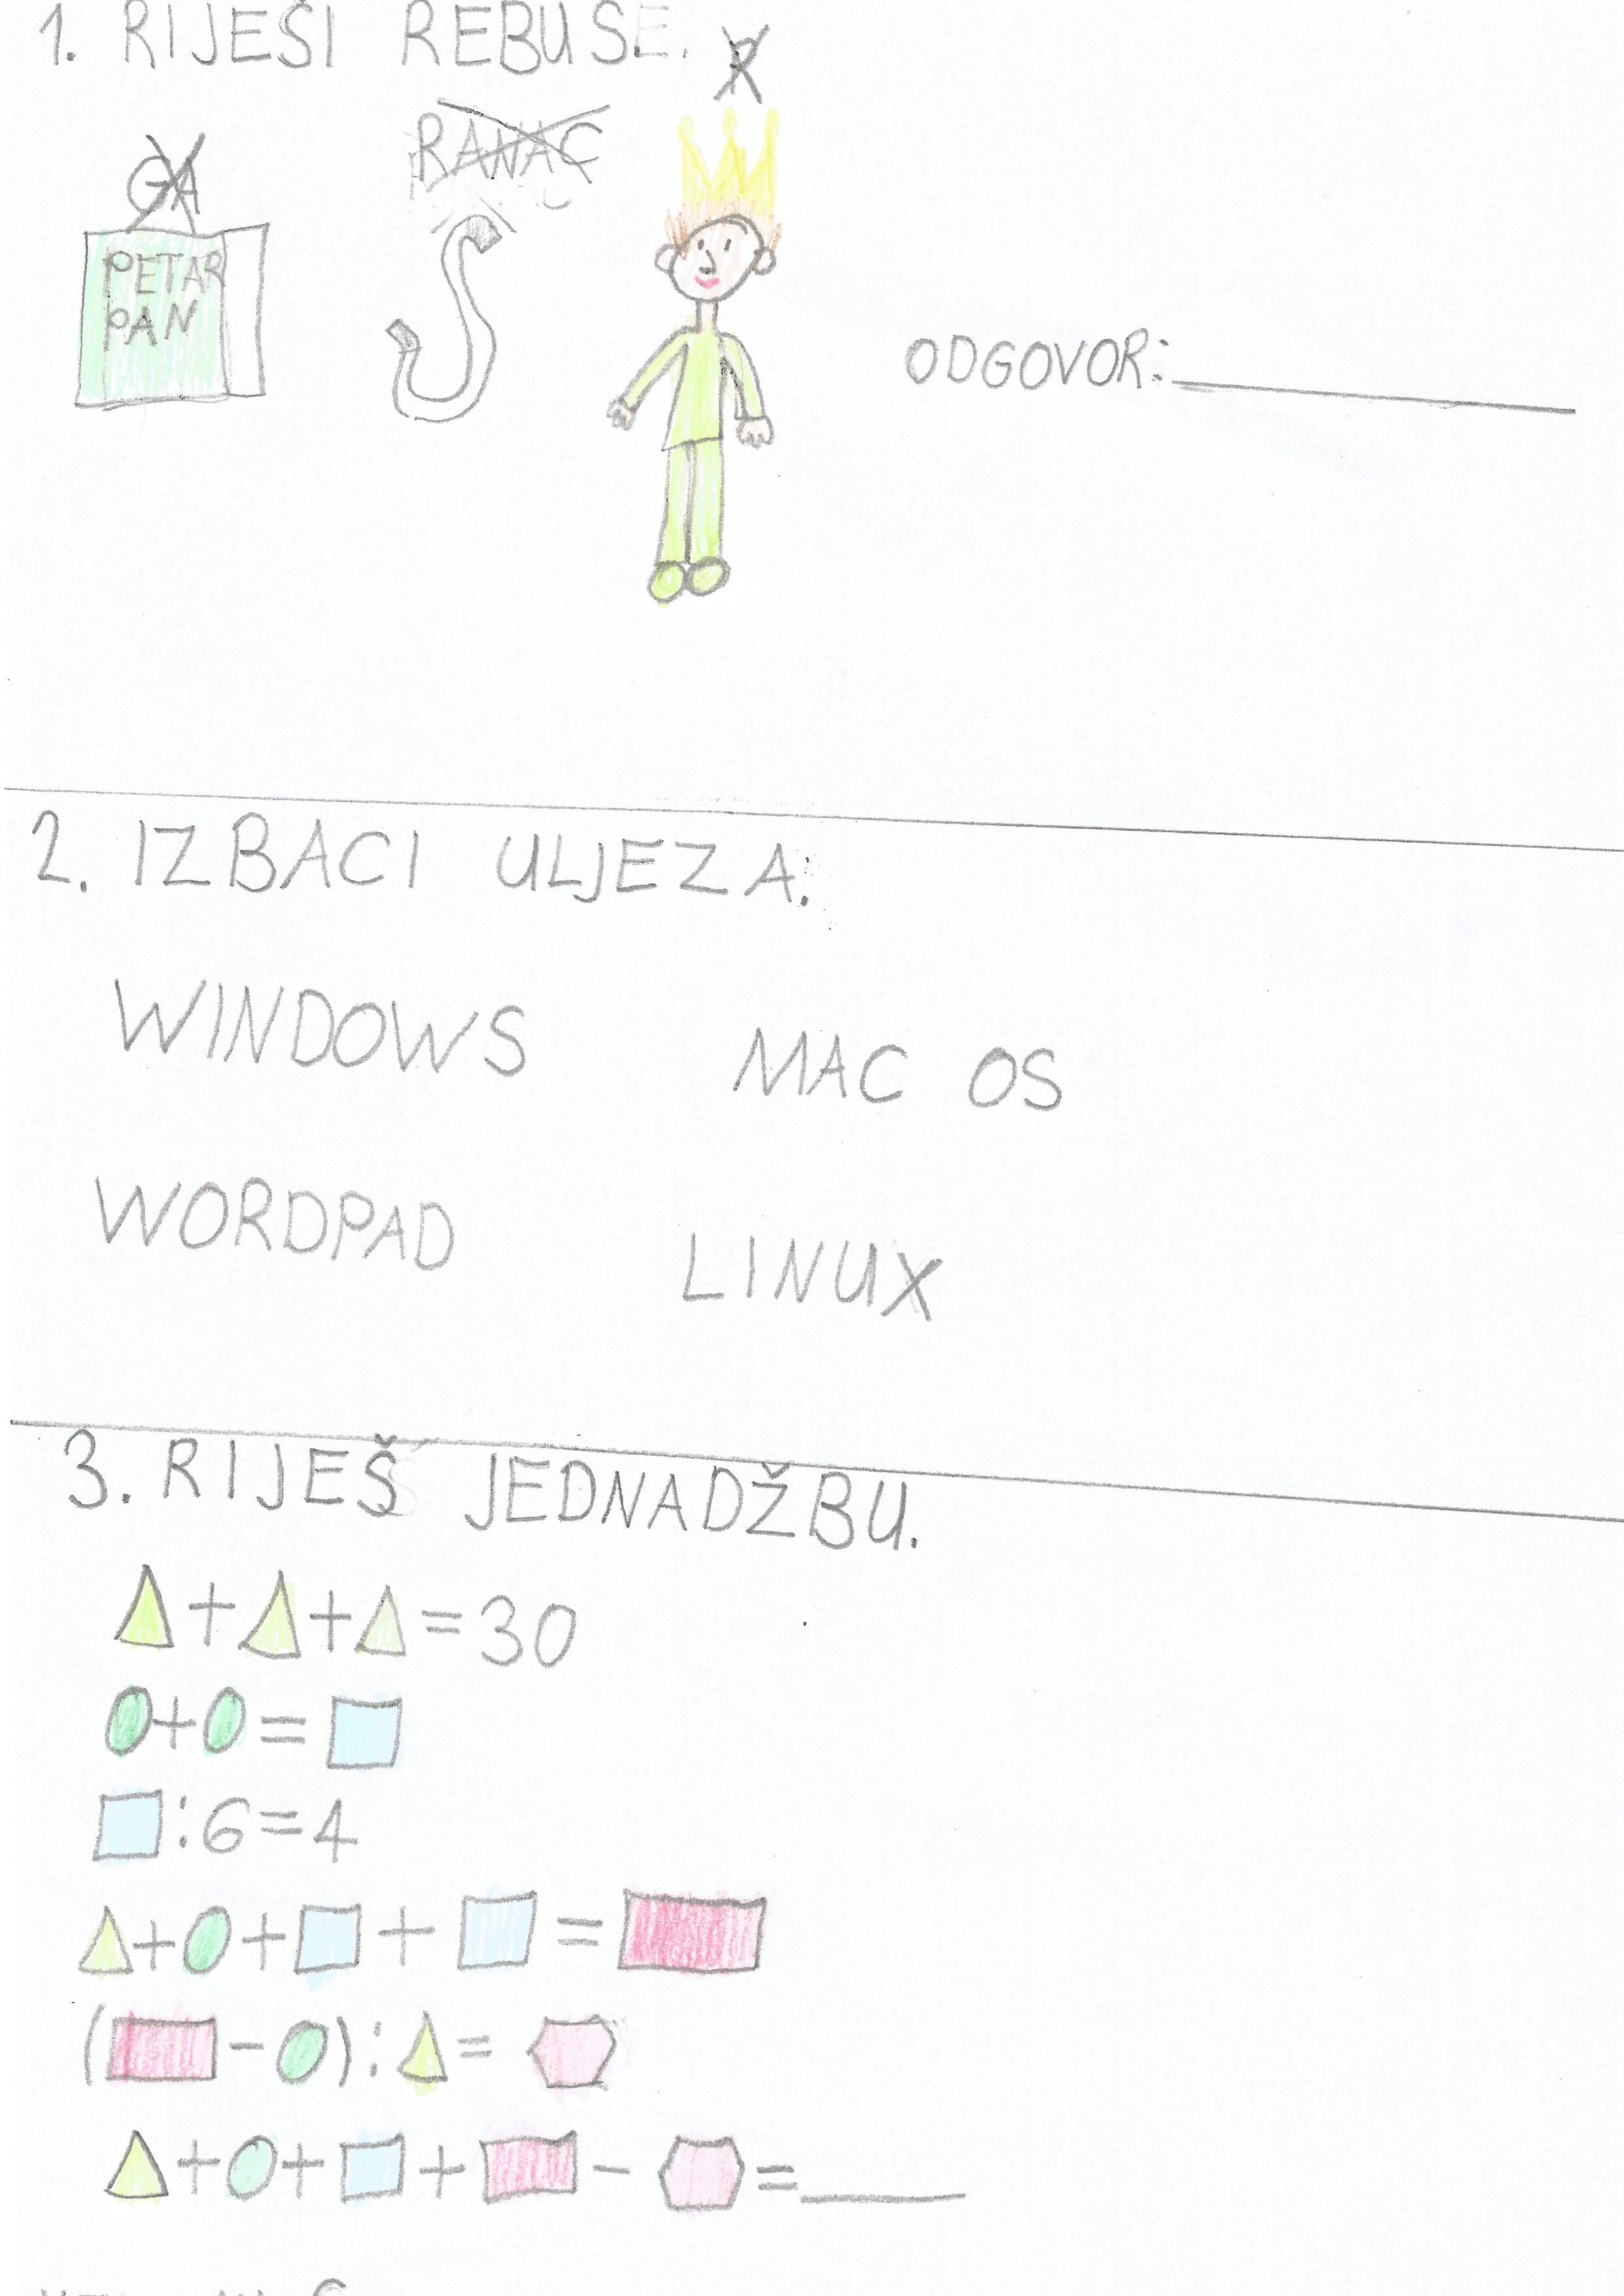 1. RIJEŠI REBUSE.
R
RANAC
GA
PETAR
PAN
ODGOVOR:
2. IZBACI ULJEZA.
WINDOWS
MAC OS
WORDPAD
LINUX
3. RIJEŠ JEDNADŽBU.
+ + = 30
+ =
:6=4
+ + + =
( - ) : =
+ + + - =